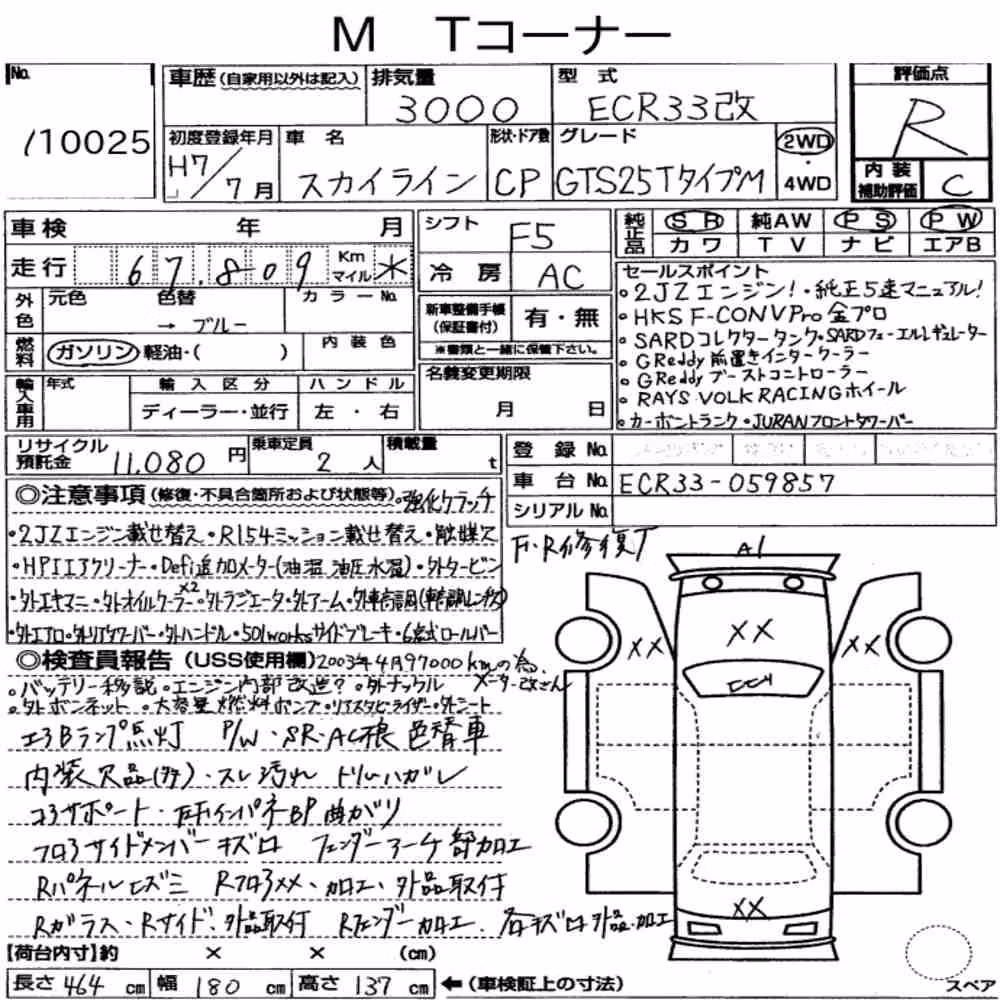 M Tコーナー
No. 110025
車歴(自家用以外は記入) 排気量 3000 型式 ECR33改 評価点 R
初度登録年月 H7/7月 車名 スカイライン 形状・ドア数 CP グレード GTS25TタイプM 2WD・4WD 内装補助評価 C
車検 年 月 シフト F5 純正品 SR 純AW PS PW
カワ TV ナビ エアB
走行 67,809 Km マイル * 冷房 AC
外色 元色 色替 → ブルー カラーNo.
新車整備手帳(保証書付) 有・無
※書類と一緒に保管下さい。
燃料 ガソリン・軽油・( ) 内装色
輸入車用 年式 輸入区分 ハンドル
ディーラー・並行 左・右
名義変更期限 月 日
セールスポイント
。2JZエンジン!・純正5速マニュアル!
。HKS F-CONVPro 金プロ
。SARDコレクタータンク・SARDフューエルレギュレーター
。GReddy 前置きインタークーラー
。GReddy ブーストコントローラー
。RAYS VOLK RACINGホイール
。カーボントランク・JURANフロントタワーバー
リサイクル預託金 11,080円 乗車定員 2人 積載量 t
登録No.
車台No. ECR33-059857
シリアルNo.
◎注意事項(修復・不具合箇所および状態等)。強化クラッチ
・2JZエンジン載せ替え・R154ミッション載せ替え・触媒欠
・HPIエアクリーナー・Defi追加メーター(油温 油圧 水温)・外タービン
・外エキマニ・外オイルクーラー×2・外ラジエータ・外アーム・外車高調
・外エアロ・外リアタワーバー・外ハンドル・501worksサイドブレーキ・6点式ロールバー
◎検査員報告(USS使用欄)2003年4月97000kmの為、メーター改ざん
。バッテリー移設。エンジン内部改造?。外ナックル
。外ボンネット。大容量燃料ポンプ。リアスタビライザー・外シート
エアBランプ点灯 P/W・SR・AC根 色替車
内装欠品(多)・スレ 汚れ ドリムハガレ
コアサポート・左右インパネBP曲がり
フロアサイドメンバーキズロ フェンダーアーチ部加工
Rパネルヒズミ Rフロア××、加工、外品取付
Rガラス・Rサイド、外品取付 Rフェンダー加工 各キズロ外品・加工
F・R修復
A1
××
××
××
××
【荷台内寸】約 × × (cm)
長さ 464 cm 幅 180 cm 高さ 137 cm ←(車検証上の寸法)
スペア